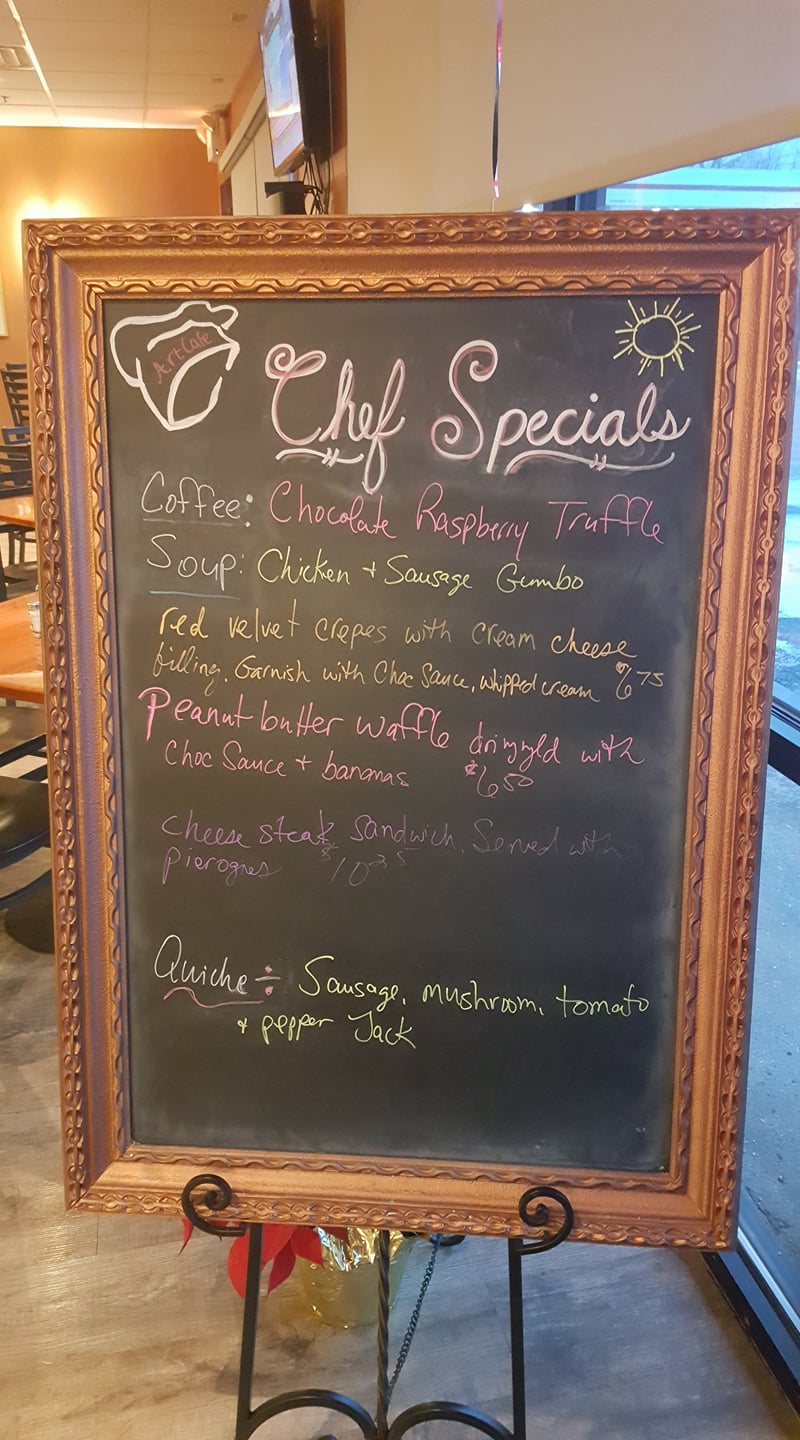 Art Cafe
Chef Specials
Coffee: Chocolate Raspberry Truffle
Soup: Chicken + Sausage Gumbo
red velvet crepes with cream cheese
filling. Garnish with Choc Sauce, whipped cream $6 75
Peanut butter waffle drizzld with
Choc Sauce + bananas $6 50
cheese steak sandwich. Served with
pierogies $10 35
Quiche: Sausage, mushroom, tomato
+ pepper Jack